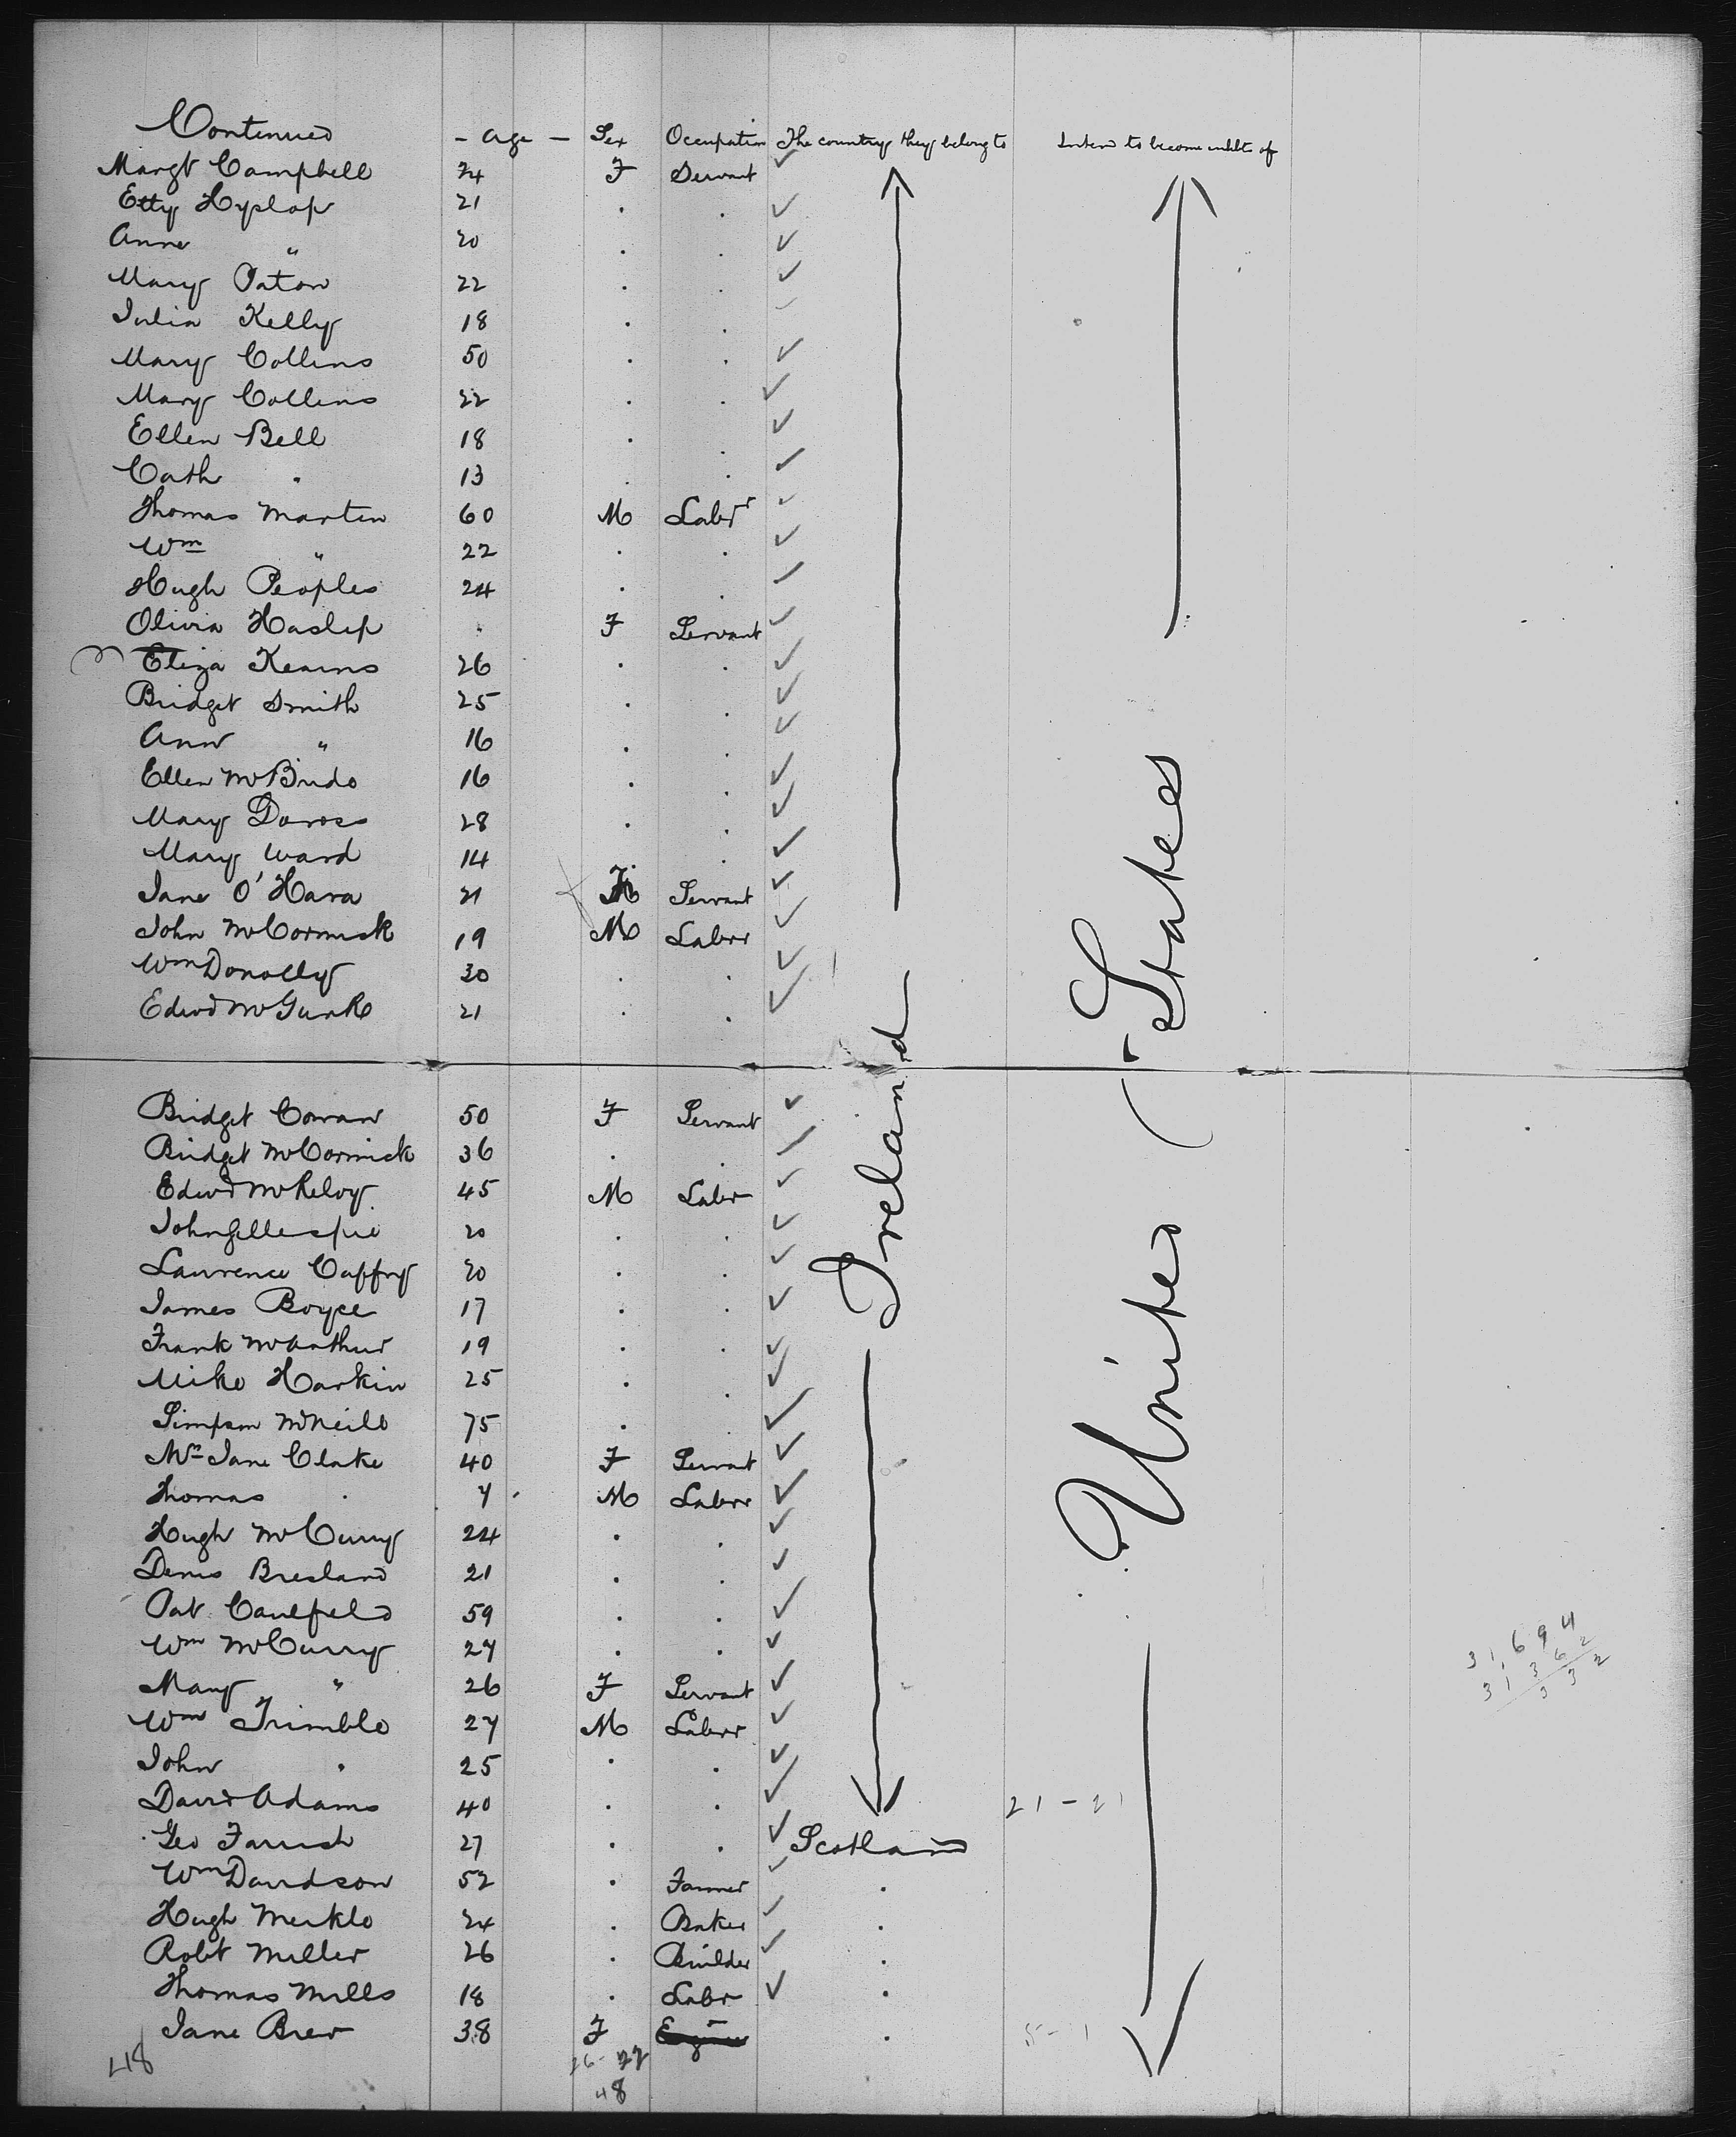 Continued - Age - Sex Occupation The country they belong to Intend to become inhbts of
Margt Campbell 24 F Servant
Etty Hyslop 21 . .
Anne " 20 . .
Mary Paton 22 . .
Julia Kelly 18 . .
Mary Collins 50 . .
Mary Collins 22 . .
Ellen Bell 18 . .
Cath " 13 . .
Thomas Martin 60 M Labr
Wm " 22 . .
Hugh Peoples 24 . .
Olivia Haslip . F Servant
Eliza Kearns 26 . .
Bridget Smith 25 . .
Ann " 16 . .
Ellen McBride 16 . .
Mary 28 . .
Mary Ward 14 . .
Jane O'Hara 21 F Servant
John McCormick 19 M Labor
Wm Donolly 30 . .
Edwd McGurk 21 . .
Ireland
United States
Bridget Cowan 50 F Servant
Bridget McCormick 36 . .
Edwd McKelvy 45 M Labr
John Gillespie 20 . .
Laurence Caffry 20 . .
James Boyce 17 . .
Frank McArthur 19 . .
Mike Harkin 25 . .
Simpson McNeill 75 .
Mrs Jane Clarke 40 F Servant
Thomas . 7 . M Labor
Hugh McCurry 24 . .
Denis Bresland 21 . .
Pat Caulfield 59 . .
Wm McCurry 27 . .
Mary " 26 F Servant
Wm Trimble 27 M Labor
John " 25 . .
David Adams 40 . . 21-21
Geo Farrish 27 . . Scotland
Wm Davidson 52 . Farmer .
Hugh Meikle 24 . Baker .
Robt Miller 26 . Builder .
Thomas Mills 18 . Labr .
Jane Brew 38 F . 5-1
48 26-22
48
31,694
31 362
332